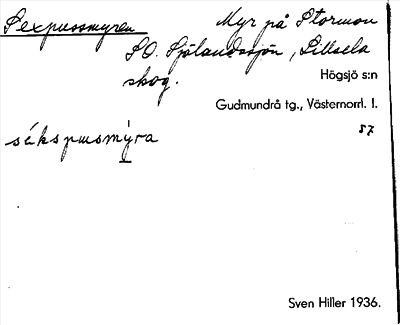 Sexpussmyren Myr på Stormon
SO. Själandssjön, Lillsela
skog. Högsjö s:n
Gudmundrå tg., Västernorrl. l.
57
sékspusmỳra
Sven Hiller 1936.